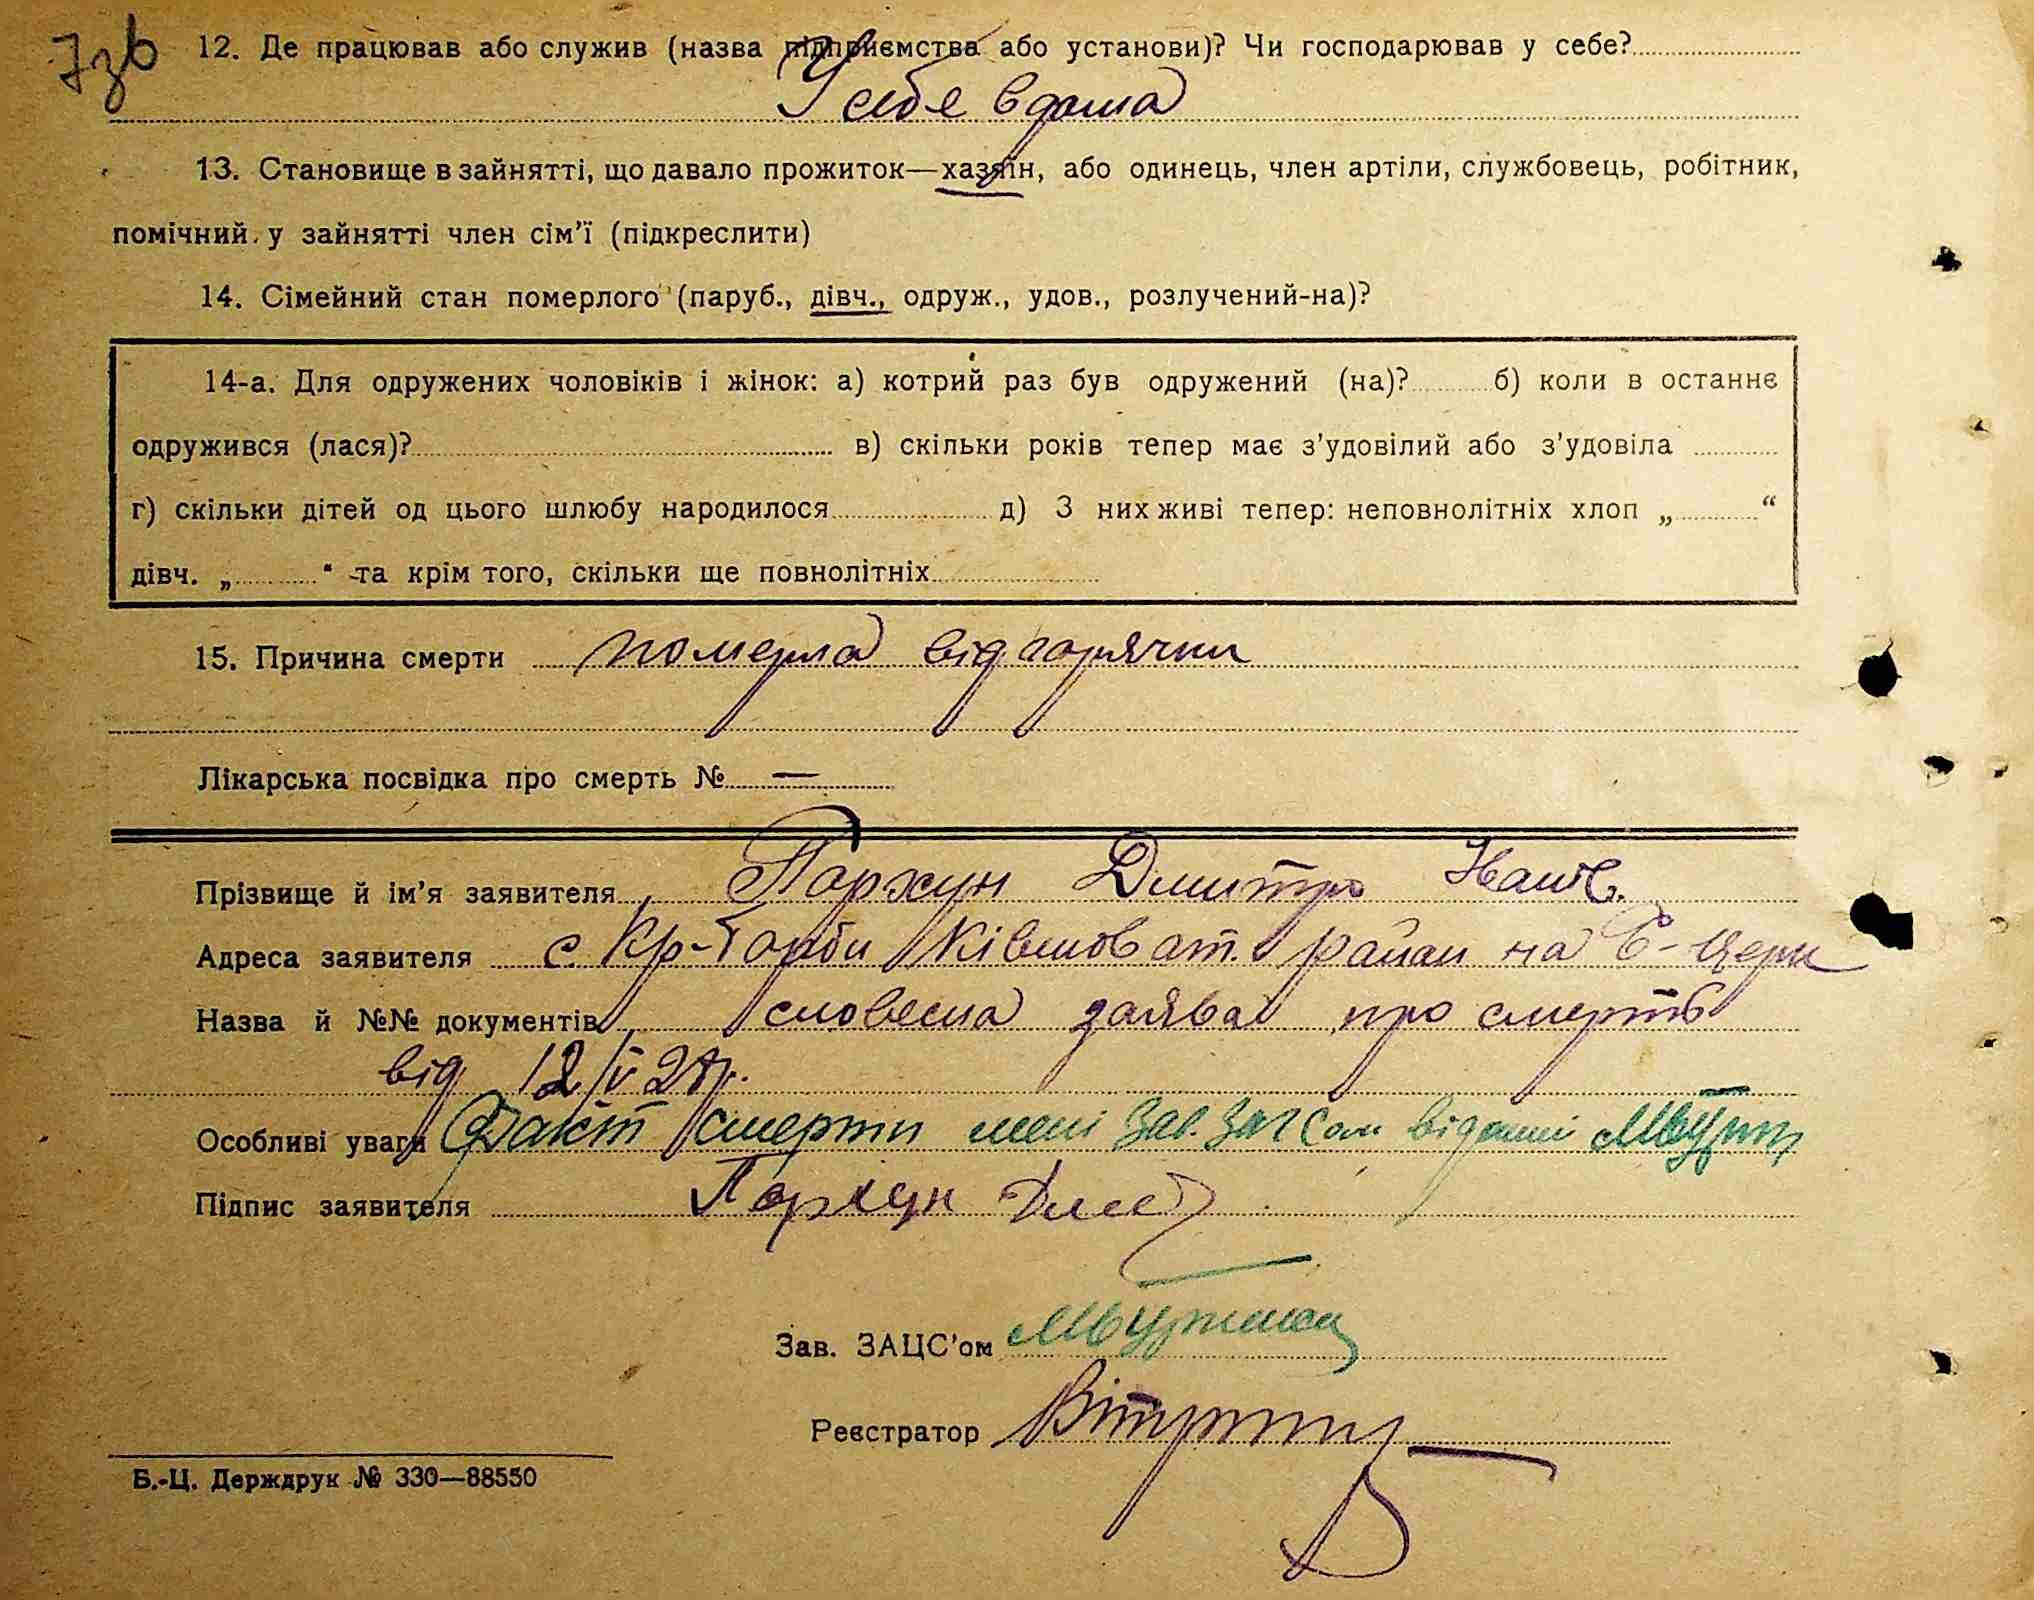 7зв
12. Де працював або служив (назва підприємства або установи)? Чи господарював у себе?
У себе вдома
13. Становище в зайнятті, що давало прожиток—хазяїн, або одинець, член артіли, службовець, робітник,
помічний у зайнятті член сім'ї (підкреслити)
14. Сімейний стан померлого (паруб., дівч., одруж., удов., розлучений-на)?
14-а. Для одружених чоловіків і жінок: а) котрий раз був одружений (на)? б) коли в останнє
одружився (лася)? в) скільки років тепер має з'удовілий або з'удовіла
г) скільки дітей од цього шлюбу народилося д) З них живі тепер: неповнолітніх хлоп „ “
дівч. „ “ та крім того, скільки ще повнолітніх
15. Причина смерти померла від горячки
Лікарська посвідка про смерть № —
Прізвище й ім'я заявителя Пархун Дмитро Наш.
Адреса заявителя с. Кр- Ківшоват. район на Б-Церк
Назва й №№ документів словесна заява про смерть
від 12/V 28р.
Особливі уваги Факт смерти мені Зав. Загсом відомий
Підпис заявителя Пархун Дмит
Зав. ЗАЦС'ом
Реєстратор
Б.-Ц. Держдрук № 330—88550